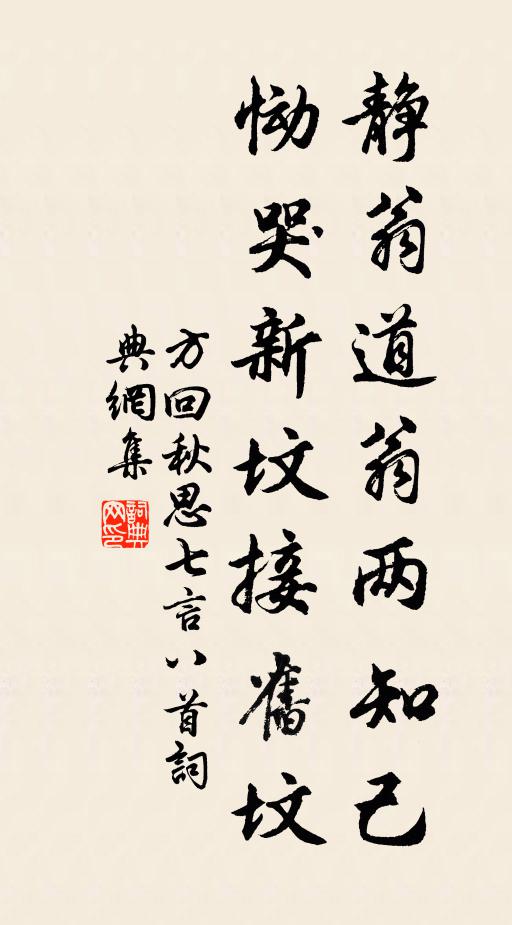 静翁道翁两知己
恸哭新坟接舊坟
方回秋思七言八首詞
典網集
詞典
网印